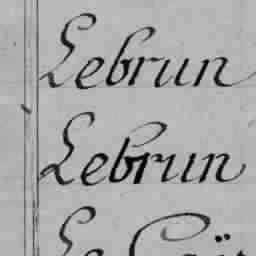 Lebrun
Lebrun